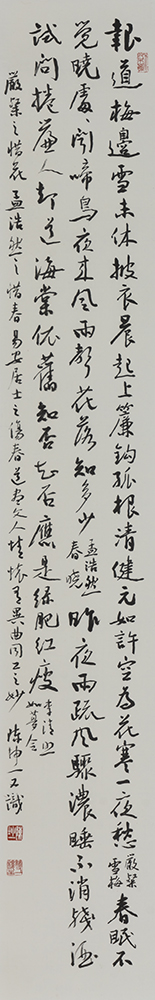 報道梅邊雪未休披衣晨起上簾鉤孤根清健元如許空為花寒一夜愁嚴粲雪梅春眠不
覺曉處處聞啼鳥夜來風雨聲花落知多少孟浩然春曉昨夜雨疏風驟濃睡不消殘酒
試問捲簾人卻道海棠依舊知否知否應是綠肥紅瘦李清照如夢令
嚴粲之惜花孟浩然之惜春易安居士之傷春道盡文人情懷有異曲同工之妙陳坤一又識